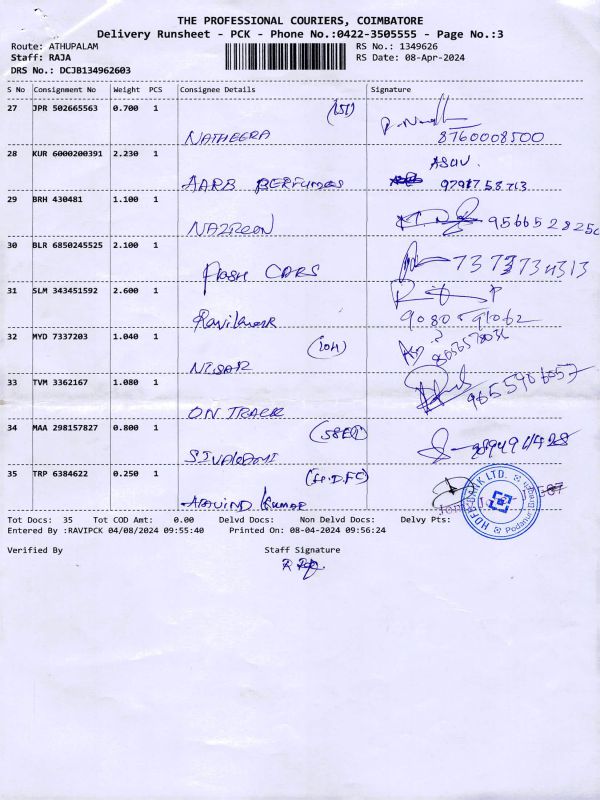 THE PROFESSIONAL COURIERS, COIMBATORE
Delivery Runsheet - PCK - Phone No.:0422-3505555 - Page No.:3
Route: ATHUPALAM RS No.: 1349626
Staff: RAJA RS Date: 08-Apr-2024
DRS No.: DCJB134962603
S No Consignment No Weight PCS Consignee Details Signature
27 JPR 502665563 0.700 1
NATHEERA 8760008500
28 KUR 6000200391 2.230 1
AARB PERFUMES
29 BRH 430481 1.100 1
NAZREEN
30 BLR 6850245525 2.100 1
Flash CARS
31 SLM 343451592 2.600 1
Ravikumar
32 MYD 7337203 1.040 1
NISAR
33 TVM 3362167 1.080 1
ON TRACK 9655906057
34 MAA 298157827 0.800 1
35 TRP 6384622 0.250 1
Aravind Kumar
HDFC BANK LTD. Podanur
Tot Docs: 35 Tot COD Amt: 0.00 Delvd Docs: Non Delvd Docs: Delvy Pts:
Entered By :RAVIPCK 04/08/2024 09:55:40 Printed On: 08-04-2024 09:56:24
Verified By Staff Signature